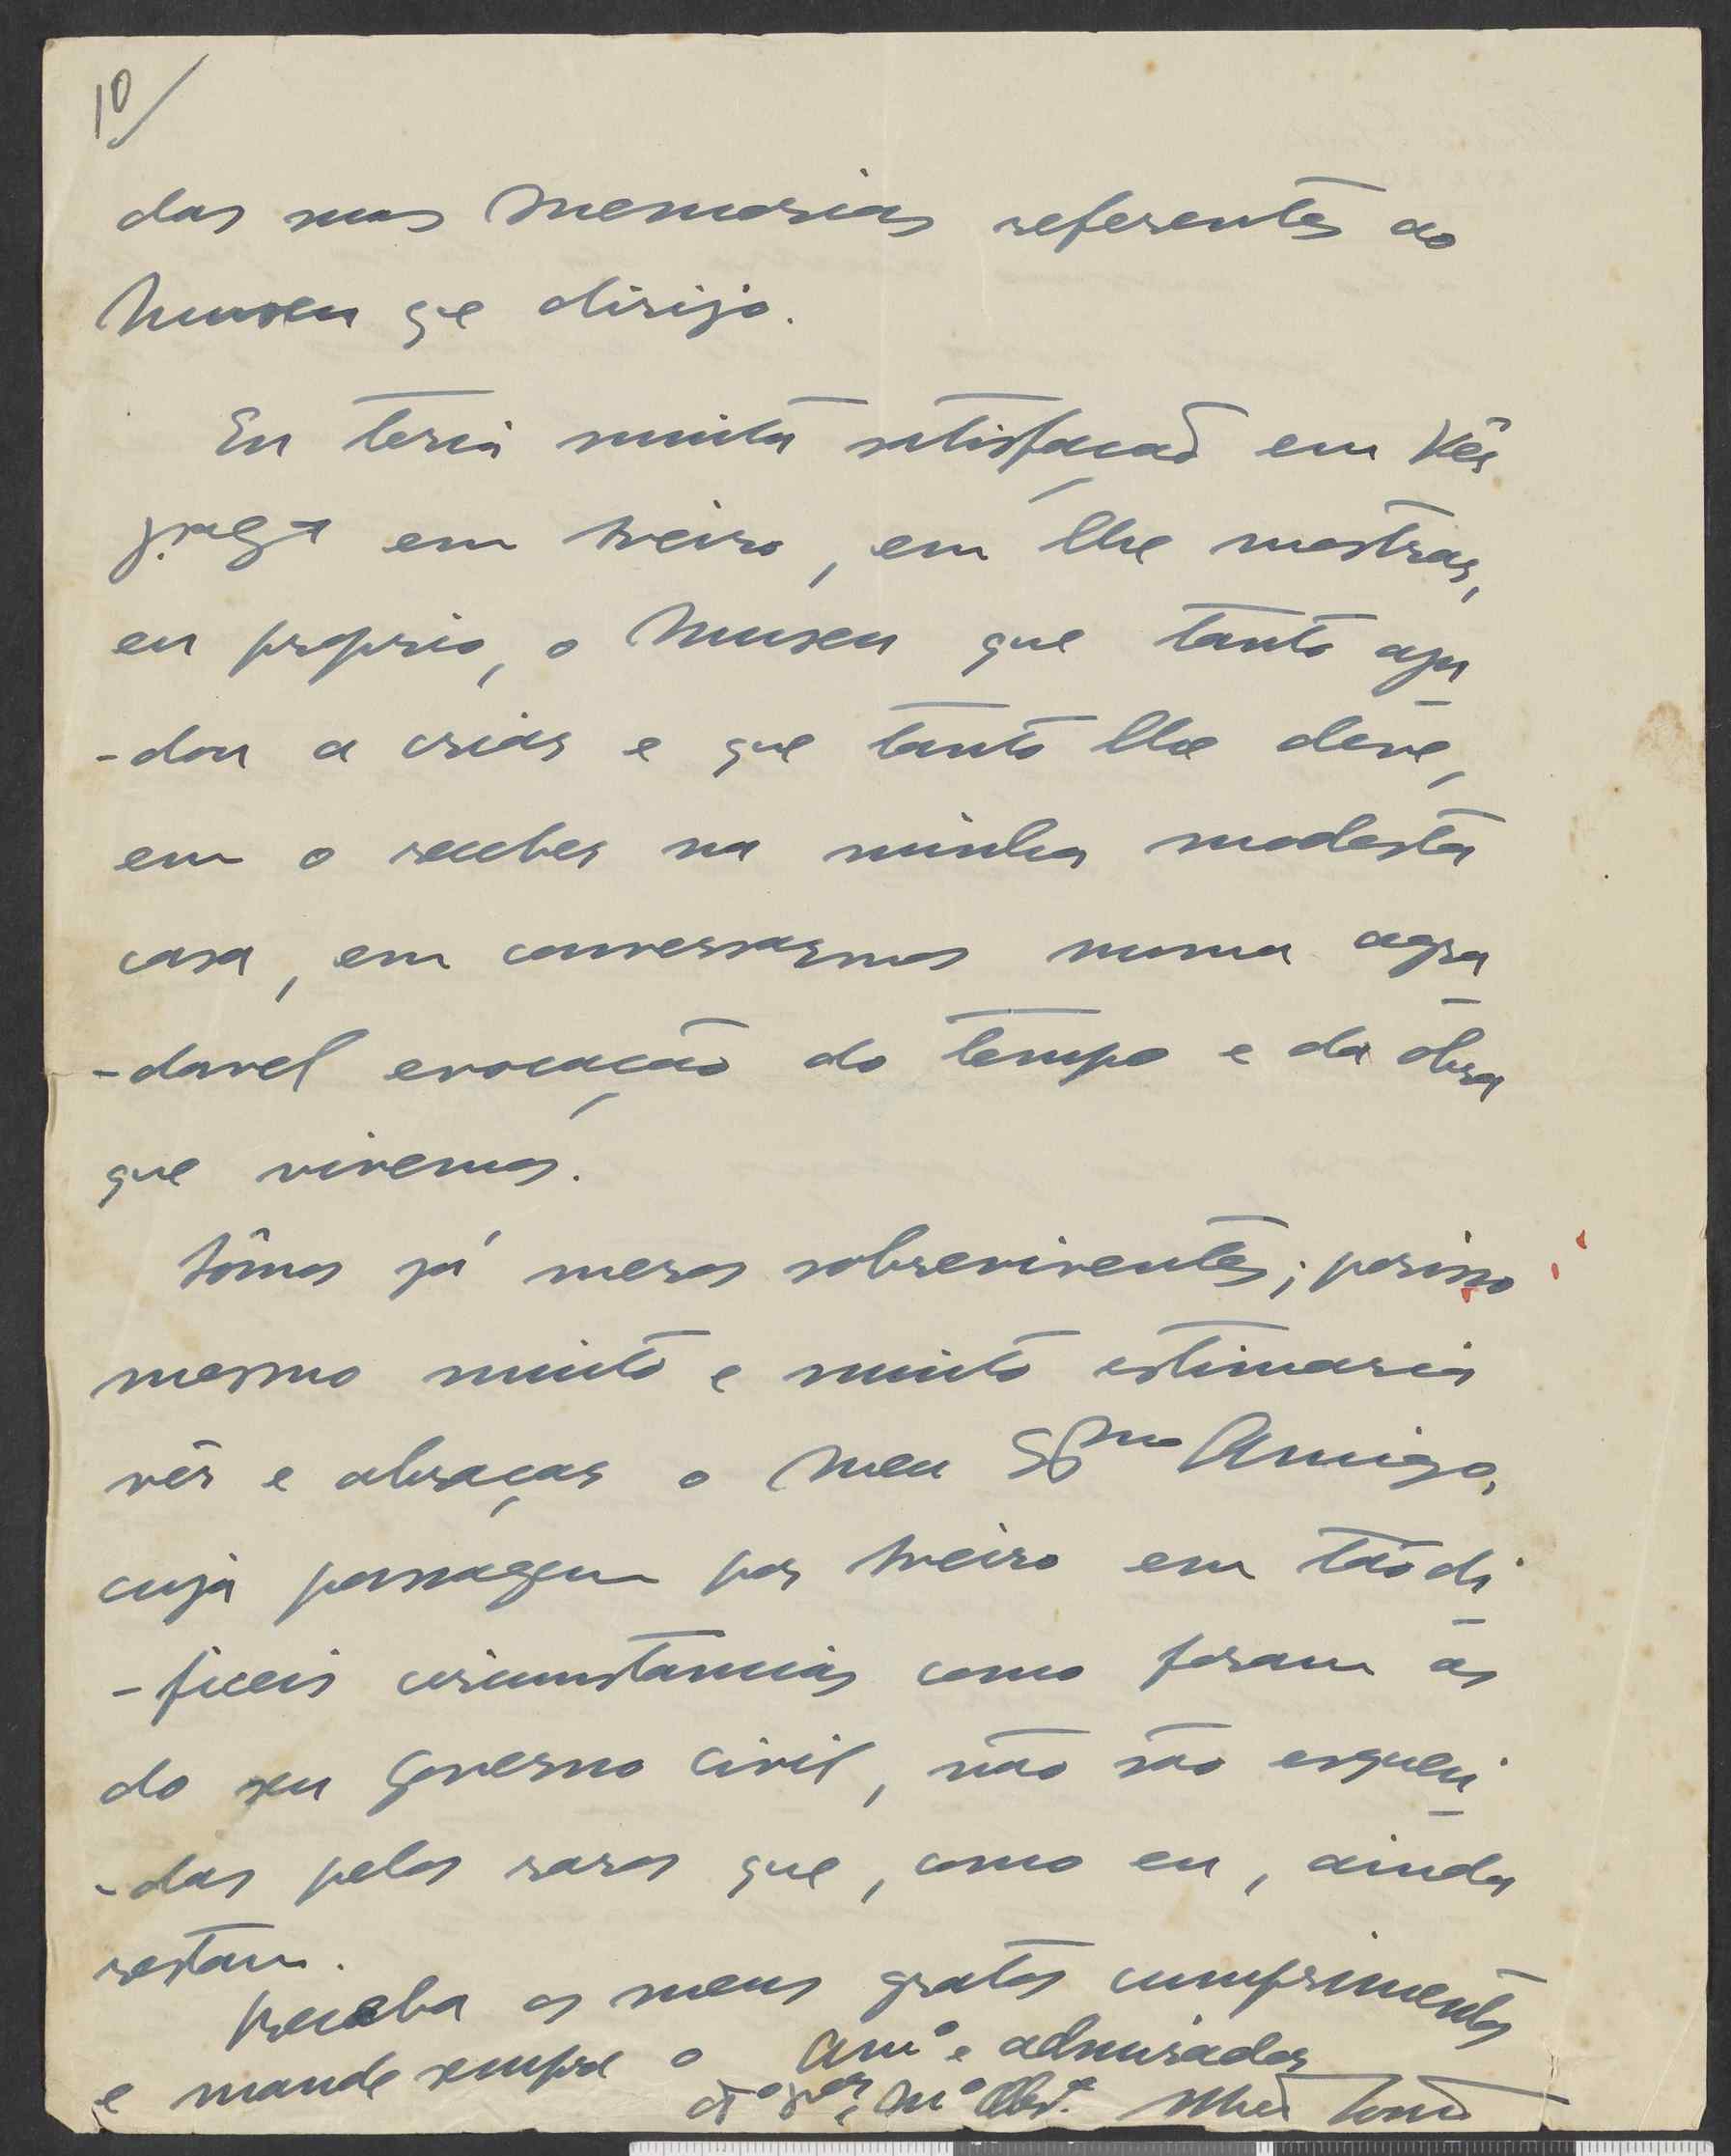 10/
das suas Memorias referentes ao
Museu qe dirijo.
Eu teria muita satisfação em Vêr
em Aveiro, em lhe mostrar,
eu proprio, o Museu que tanto aju-
-dou a criar e que tanto lhe deve,
em o receber na minha modesta
casa, em conversarmos numa agra-
-davel evocação do tempo e da óbra
que vivemos.
Sômos já meros sobreviventes; porisso
mesmo muito e muito estimaria
vêr e abraçar o Meu Amigo,
cuja passagem por Aveiro em tão di-
-ficeis circumstancias como foram as
do seu Governo Civil, não são esqueci-
-das pelos raros que, como eu, ainda
restam.
Receba os meus gratos cumprimentos
e mande sempre o Amº e admirador
Mº Obrº